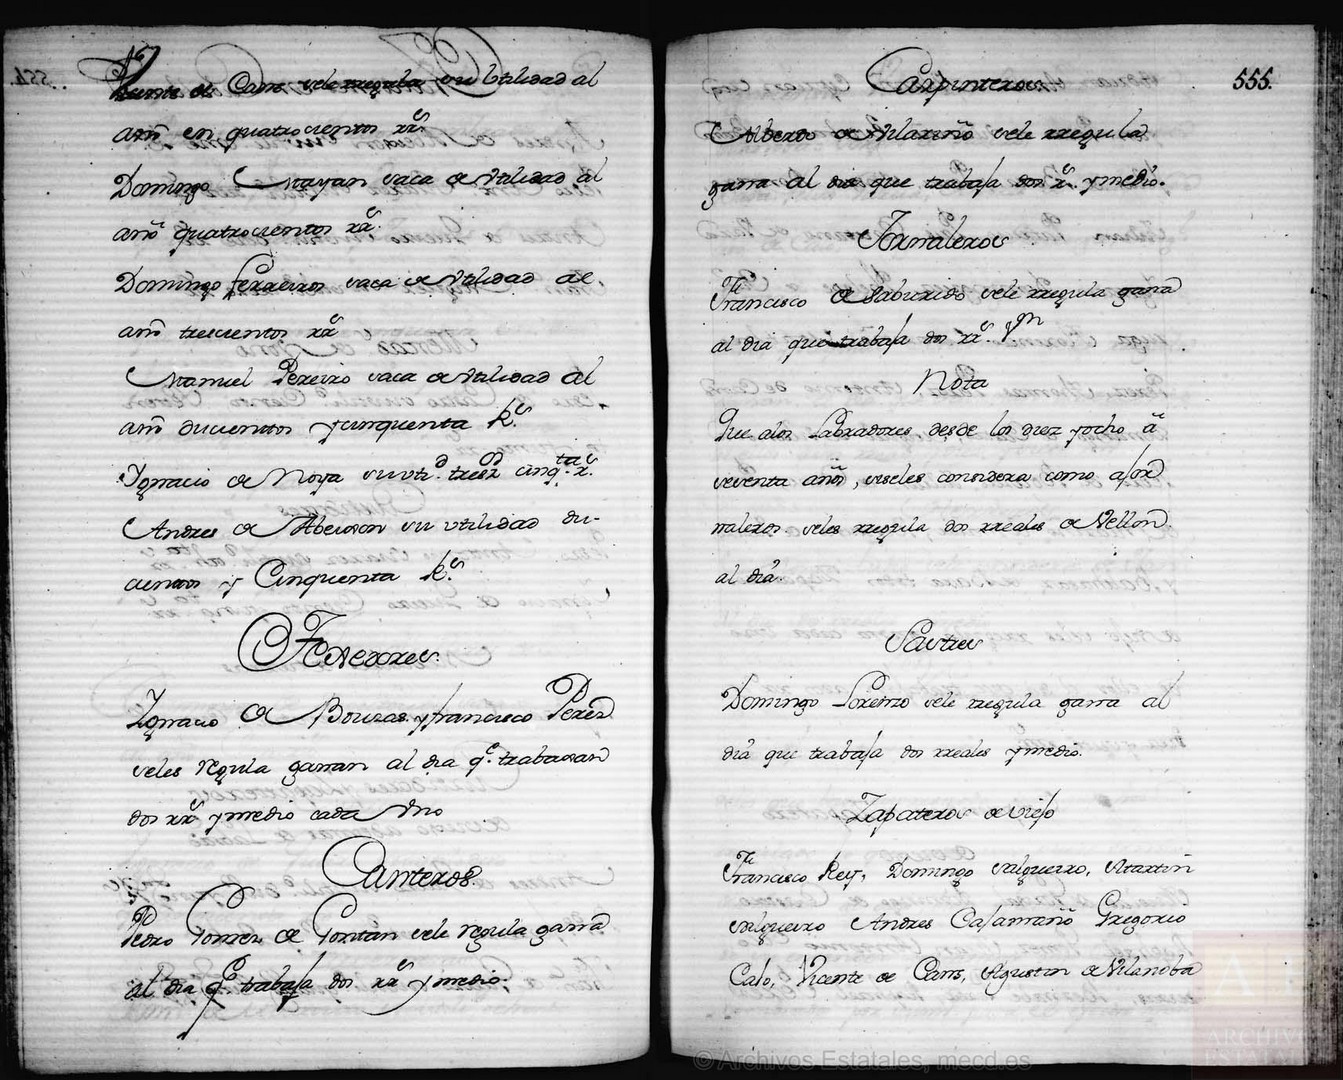 de Cans sele rregula su Utilidad al
año en quatrocientos rrs
Domingo Mayan saca de Utilidad al
año quatrocientos rrs.
Domingo Ferreiros saca de Utilidad al
año trescientos rrs
Manuel Pereiro saca de Utilidad al
año ducientos y cinquenta Rs.
Ygnacio de Noya su utd. tresz.os cinqta. rs.
Andres de Abeijon su utilidad du-
cientos y Cinquenta Rs.
Ygnacio de Bouzas y francisco Perez
seles regula ganan al dia q.e trabajan
dos rrs y medio cada Uno
Canteros.
Pedro Torres de Tontan sele regula gana
al dia q.e trabaja dos rrs y medio.
555.
Carpinteros
Alberto de Vilariño sele rregula
gana al dia que trabaja dos rs. y medio.
Jornaleros
Francisco de Saburido sele rregula gana
al dia que trabaja dos rrs. y m
Nota
Que alos Labradores desde los diez y ocho â
sesenta años, seseles considera como a Jor
naleros. seles rregula dos rreales de Vellon
al dia.
Sastres
Domingo Lorenzo sele rregula gana al
dia que trabaja dos rreales y medio.
Zapateros de viejo
Francisco Rey, Domingo Salgueiro, Martin
salgueiro Andres Casamaño Gregorio
Calo, Vicente de Cans, Agustin de Vilanoba
© Archivos Estatales, mecd.es
ARCHIVOS
ESTATALES